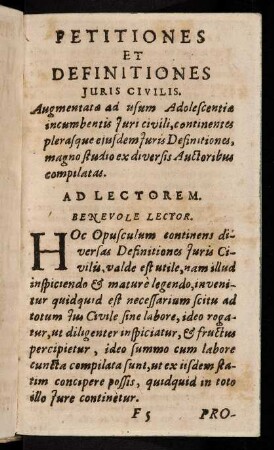 PETITIONES
ET
DEFINITIONES
JURIS CIVILIS.
Augmentata ad usum Adolescentiæ
incumbentis Juri civili, continentes
plerasque ejusdem Juris Definitiones,
magno studio ex diversis Auctoribus
compilatas.
AD LECTOREM.
BENEVOLE LECTOR.
HOc Opusculum continens di-
versas Definitiones Juris Ci-
vilis, valde est utile, nam illud
inspiciendo & maturè legendo, inveni-
tur quidquid est necessarium scitu ad
totum Jus Civile sine labore, ideo roga-
tur, ut diligenter inspiciatur, & fructus
percipietur, ideo summo cum labore
cuncta compilata sunt, ut ex iisdem sta-
tim concipere possis, quidquid in toto
illo Jure continetur.
F 5 PRO-